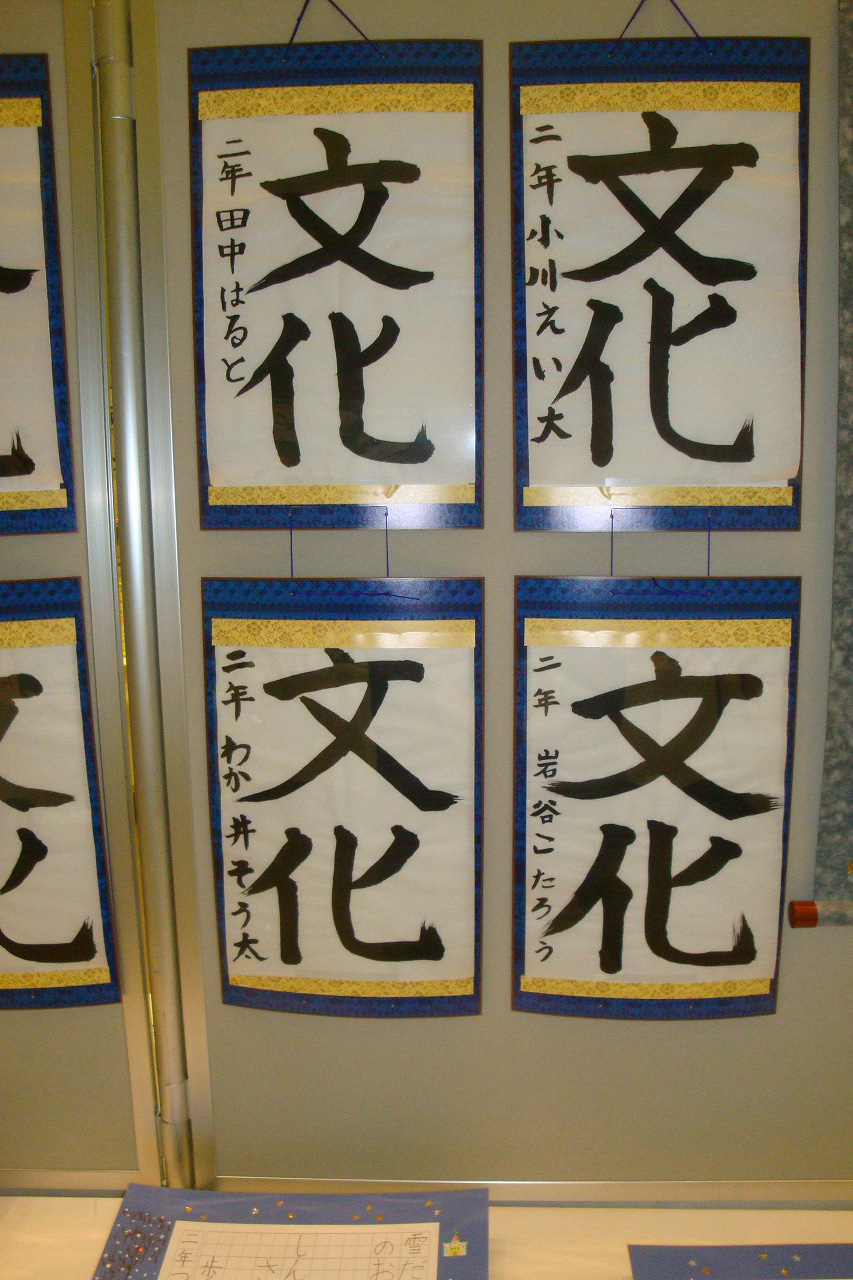 文化
二年小川えい大
文化
二年田中はると
文化
二年 岩谷こたろう
文化
二年わか井そう太
化
雪だ
のお
しん
さ
歩
二年つ